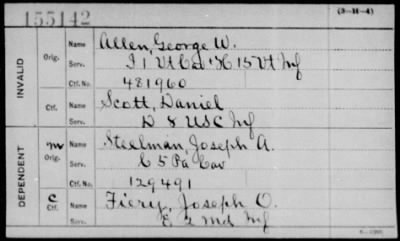 155142 (3-11-4)
INVALID
Orig. Name Allen, George W.
Serv. I 1 Vt Cav & K 15 Vt Inf
Ctf. No. 481960
Ctf. Name Scott, Daniel
Serv. D 8 USC Inf
DEPENDENT
m Orig. Name Steelman, Joseph A.
Serv. C 5 Pa Cav
Ctf. No. 129491
C Ctf. Name Fiery, Joseph O.
Serv. E 2 Md Inf